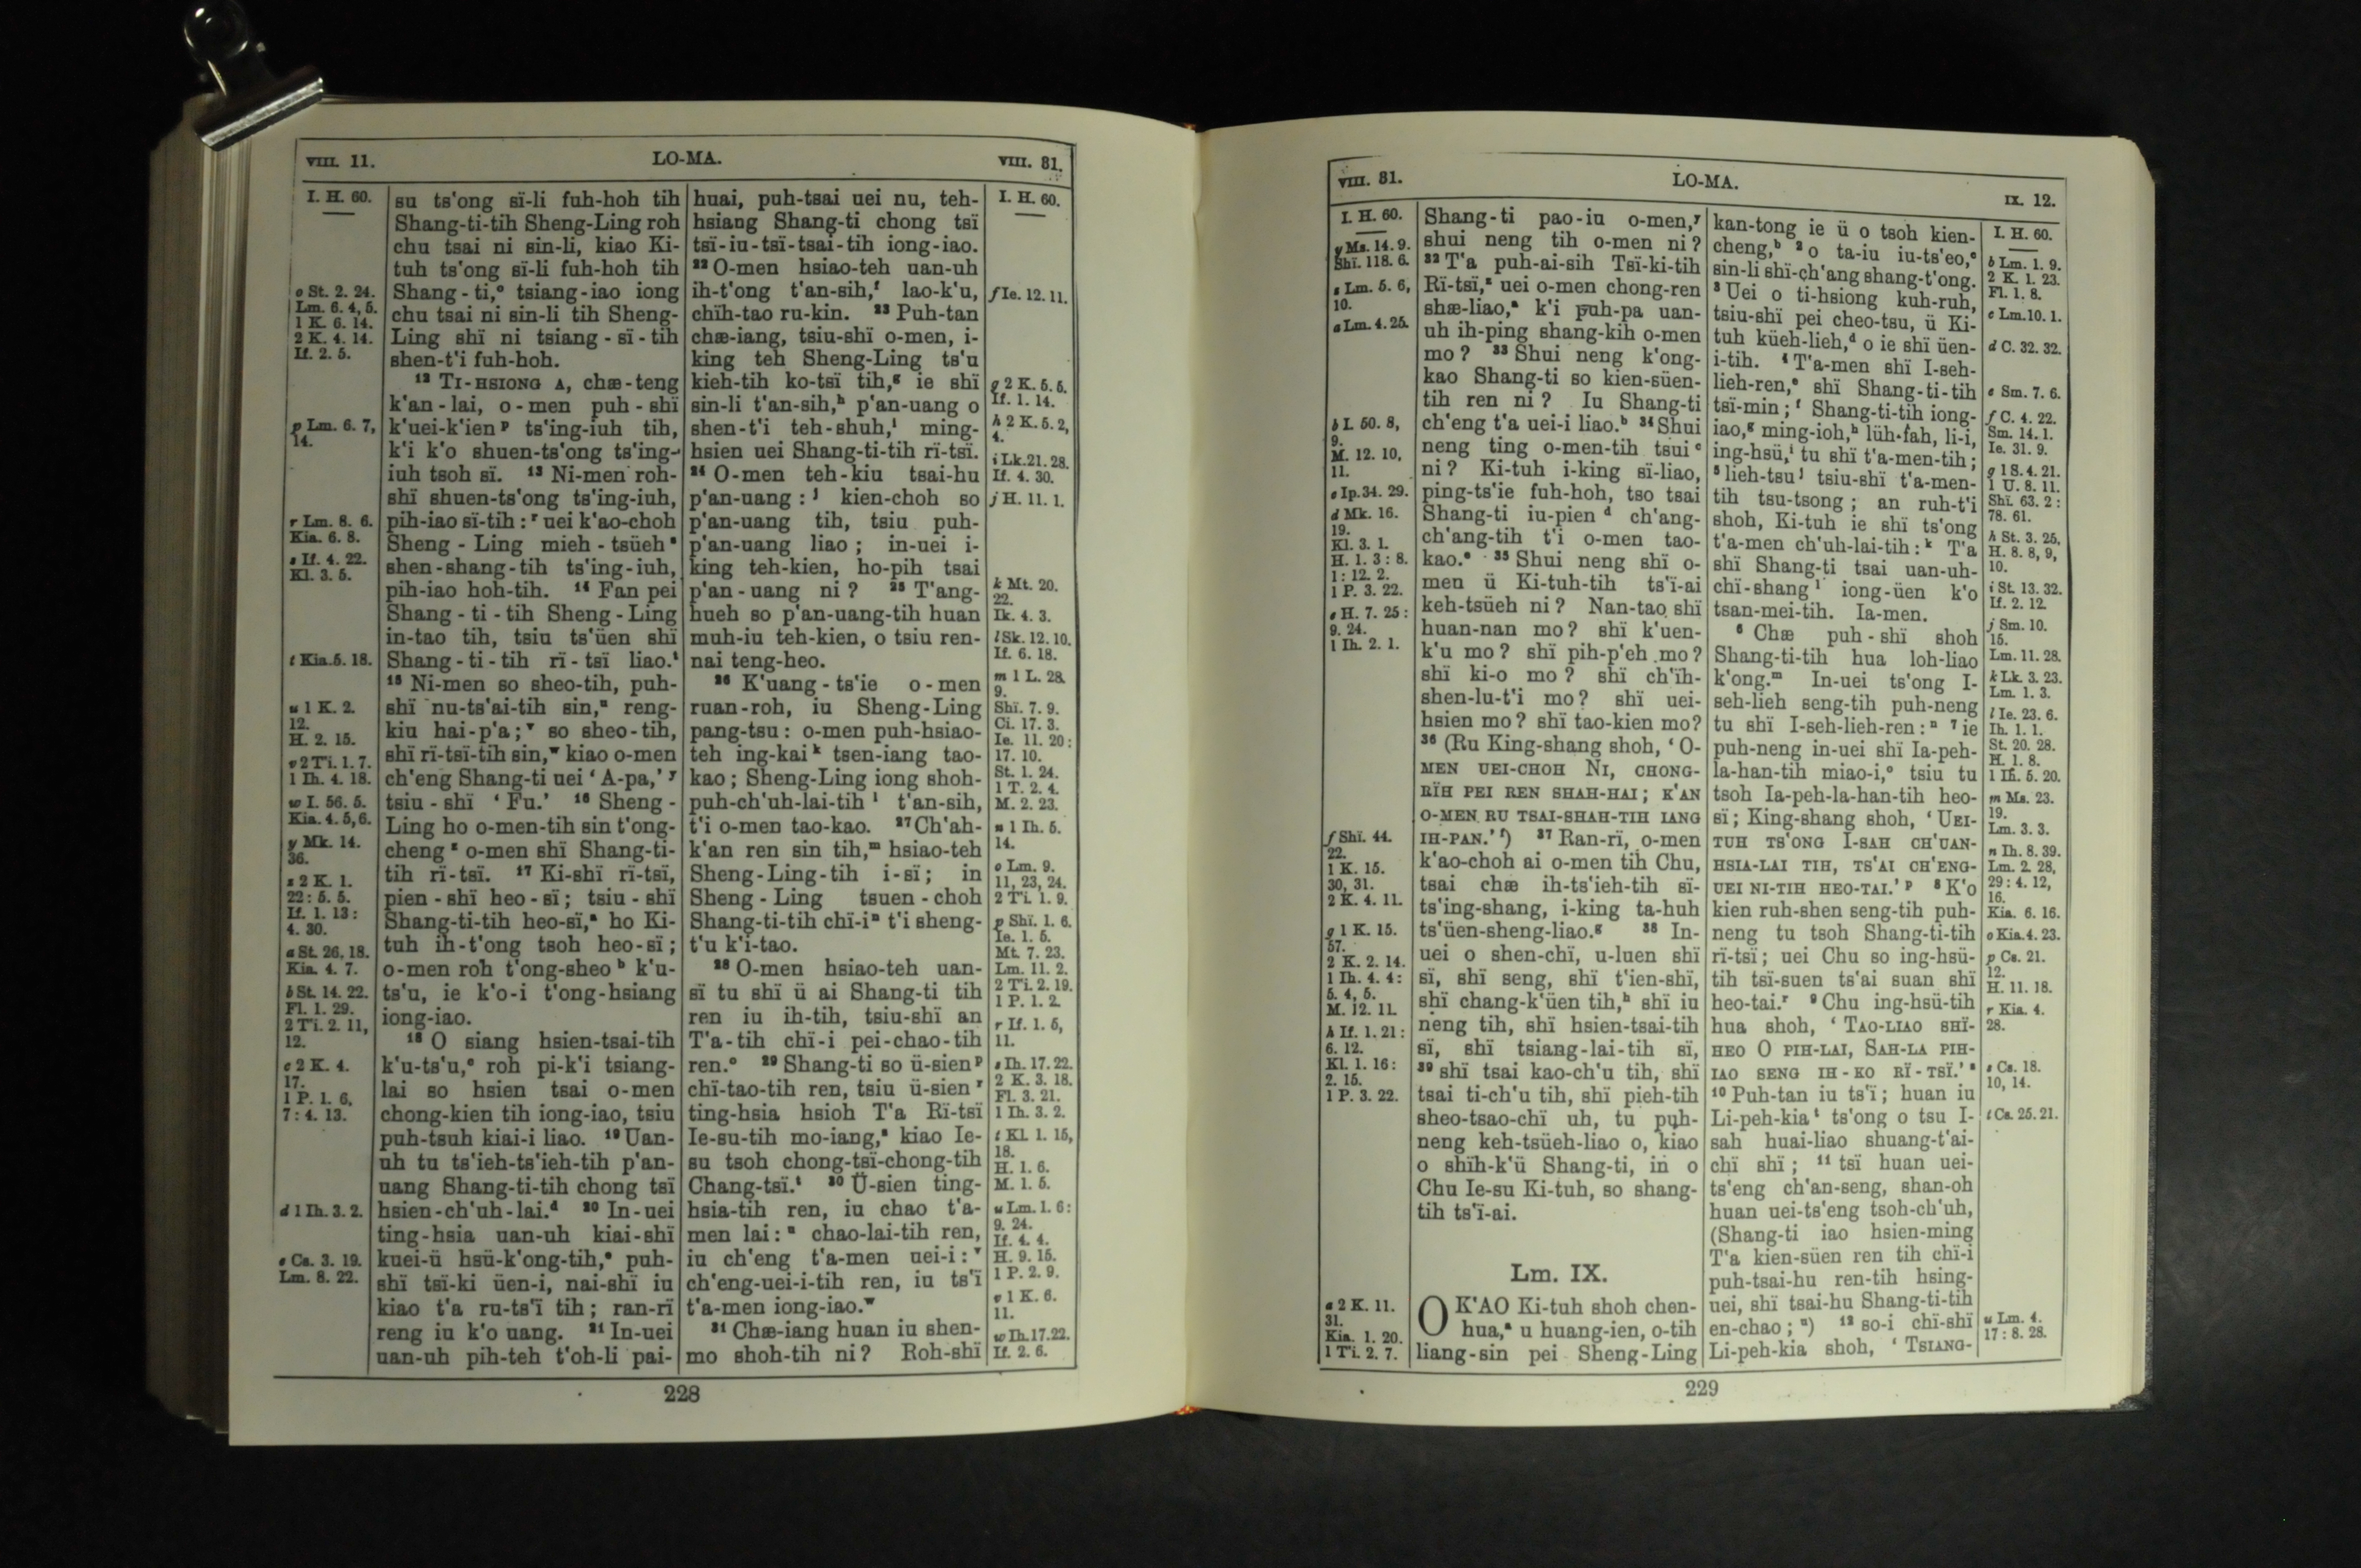 VIII. 11.
LO-MA.
VIII. 31.
I. H. 60.
o St. 2. 24.
Lm. 6. 4, 5.
1 K. 6. 14.
2 K. 4. 14.
If. 2. 5.
p Lm. 6. 7,
14.
r Lm. 8. 6.
Kia. 6. 8.
s If. 4. 22.
Kl. 3. 5.
t Kia. 5. 18.
u 1 K. 2.
12.
H. 2. 15.
v 2 Ti. 1. 7.
1 Ih. 4. 18.
w I. 56. 5.
Kia. 4. 5, 6.
y Mk. 14.
36.
z 2 K. 1.
22 : 5. 5.
If. 1. 13 :
4. 30.
a St. 26. 18.
Kia. 4. 7.
b St. 14. 22.
Fl. 1. 29.
2 Ti. 2. 11,
12.
c 2 K. 4.
17.
1 P. 1. 6,
7 : 4. 13.
d 1 Ih. 3. 2.
e Cs. 3. 19.
Lm. 8. 22.
su ts'ong sï-li fuh-hoh tih
Shang-ti-tih Sheng-Ling roh
chu tsai ni sin-li, kiao Ki-
tuh ts'ong sï-li fuh-hoh tih
Shang-ti,o tsiang-iao iong
chu tsai ni sin-li tih Sheng-
Ling shï ni tsiang-sï-tih
shen-t'i fuh-hoh.
12 TI-HSIONG A, chæ-teng
k'an-lai, o-men puh-shï
k'uei-k'ien p ts'ing-iuh tih,
k'i k'o shuen-ts'ong ts'ing-
iuh tsoh sï. 13 Ni-men roh-
shï shuen-ts'ong ts'ing-iuh,
pih-iao sï-tih : r uei k'ao-choh
Sheng-Ling mieh-tsüeh s
shen-shang-tih ts'ing-iuh,
pih-iao hoh-tih. 14 Fan pei
Shang-ti-tih Sheng-Ling
in-tao tih, tsiu ts'üen shï
Shang-ti-tih rï-tsï liao.t
15 Ni-men so sheo-tih, puh-
shï nu-ts'ai-tih sin,u reng-
kiu hai-p'a ; v so sheo-tih,
shï rï-tsï-tih sin,w kiao o-men
ch'eng Shang-ti uei ‘ A-pa,’ y
tsiu-shï ‘ Fu.’ 16 Sheng-
Ling ho o-men-tih sin t'ong-
cheng z o-men shï Shang-ti-
tih rï-tsï. 17 Ki-shï rï-tsï,
pien-shï heo-sï ; tsiu-shï
Shang-ti-tih heo-sï,a ho Ki-
tuh ih-t'ong tsoh heo-sï ;
o-men roh t'ong-sheo b k'u-
ts'u, ie k'o-i t'ong-hsiang
iong-iao.
18 O siang hsien-tsai-tih
k'u-ts'u,c roh pi-k'i tsiang-
lai so hsien tsai o-men
chong-kien tih iong-iao, tsiu
puh-tsuh kiai-i liao. 19 Uan-
uh tu ts'ieh-ts'ieh-tih p'an-
uang Shang-ti-tih chong tsï
hsien-ch'uh-lai.d 20 In-uei
ting-hsia uan-uh kiai-shï
kuei-ü hsü-k'ong-tih,e puh-
shï tsï-ki üen-i, nai-shï iu
kiao t'a ru-ts'ï tih ; ran-rï
reng iu k'o uang. 21 In-uei
uan-uh pih-teh t'oh-li pai-
huai, puh-tsai uei nu, teh-
hsiang Shang-ti chong tsï
tsï-iu-tsï-tsai-tih iong-iao.
22 O-men hsiao-teh uan-uh
ih-t'ong t'an-sih,f lao-k'u,
chïh-tao ru-kin. 23 Puh-tan
chæ-iang, tsiu-shï o-men, i-
king teh Sheng-Ling ts'u
kieh-tih ko-tsï tih,g ie shï
sin-li t'an-sih,h p'an-uang o
shen-t'i teh-shuh,i ming-
hsien uei Shang-ti-tih rï-tsï.
24 O-men teh-kiu tsai-hu
p'an-uang : j kien-choh so
p'an-uang tih, tsiu puh-
p'an-uang liao ; in-uei i-
king teh-kien, ho-pih tsai
p'an-uang ni ? 25 T'ang-
hueh so p'an-uang-tih huan
muh-iu teh-kien, o tsiu ren-
nai teng-heo.
26 K'uang-ts'ie o-men
ruan-roh, iu Sheng-Ling
pang-tsu : o-men puh-hsiao-
teh ing-kai k tsen-iang tao-
kao ; Sheng-Ling iong shoh-
puh-ch'uh-lai-tih l t'an-sih,
t'i o-men tao-kao. 27 Ch'ah-
k'an ren sin tih,m hsiao-teh
Sheng-Ling-tih i-sï ; in
Sheng-Ling tsuen-choh
Shang-ti-tih chï-i n t'i sheng-
t'u k'i-tao.
28 O-men hsiao-teh uan-
sï tu shï ü ai Shang-ti tih
ren iu ih-tih, tsiu-shï an
T'a-tih chï-i pei-chao-tih
ren.o 29 Shang-ti so ü-sien p
chï-tao-tih ren, tsiu ü-sien r
ting-hsia hsioh T'a Rï-tsï
Ie-su-tih mo-iang,s kiao Ie-
su tsoh chong-tsï-chong-tih
Chang-tsï.t 30 Ü-sien ting-
hsia-tih ren, iu chao t'a-
men lai : u chao-lai-tih ren,
iu ch'eng t'a-men uei-i : v
ch'eng-uei-i-tih ren, iu ts'ï
t'a-men iong-iao.w
31 Chæ-iang huan iu shen-
mo shoh-tih ni ? Roh-shï
I. H. 60.
f Ie. 12. 11.
g 2 K. 5. 5.
If. 1. 14.
h 2 K. 5. 2,
4.
i Lk. 21. 28.
If. 4. 30.
j H. 11. 1.
k Mt. 20.
22.
Ik. 4. 3.
l Sk. 12. 10.
If. 6. 18.
m 1 L. 28.
9.
Shï. 7. 9.
Ci. 17. 3.
Ie. 11. 20 :
17. 10.
St. 1. 24.
1 T. 2. 4.
M. 2. 23.
n 1 Ih. 5.
14.
o Lm. 9.
11, 23, 24.
2 Ti. 1. 9.
p Shï. 1. 6.
Ie. 1. 5.
Mt. 7. 23.
Lm. 11. 2.
2 Ti. 2. 19.
1 P. 1. 2.
r If. 1. 5,
11.
s Ih. 17. 22.
2 K. 3. 18.
Fl. 3. 21.
1 Ih. 3. 2.
t Kl. 1. 15,
18.
H. 1. 6.
M. 1. 5.
u Lm. 1. 6 :
9. 24.
If. 4. 4.
H. 9. 15.
1 P. 2. 9.
v 1 K. 6.
11.
w Ih. 17. 22.
If. 2. 6.
228
VIII. 31.
LO-MA.
IX. 12.
I. H. 60.
y Ms. 14. 9.
Shï. 118. 6.
z Lm. 5. 6,
10.
a Lm. 4. 25.
b I. 50. 8,
9.
M. 12. 10,
11.
c Ip. 34. 29.
d Mk. 16.
19.
Kl. 3. 1.
H. 1. 3 : 8.
1 : 12. 2.
1 P. 3. 22.
e H. 7. 25 :
9. 24.
1 Ih. 2. 1.
f Shï. 44.
22.
1 K. 15.
30, 31.
2 K. 4. 11.
g 1 K. 15.
57.
2 K. 2. 14.
1 Ih. 4. 4 :
5. 4, 5.
M. 12. 11.
h If. 1. 21 :
6. 12.
Kl. 1. 16 :
2. 15.
1 P. 3. 22.
a 2 K. 11.
31.
Kia. 1. 20.
1 Ti. 2. 7.
Shang-ti pao-iu o-men,y
shui neng tih o-men ni ?
32 T'a puh-ai-sih Tsï-ki-tih
Rï-tsï,z uei o-men chong-ren
shæ-liao,a k'i puh-pa uan-
uh ih-ping shang-kih o-men
mo ? 33 Shui neng k'ong-
kao Shang-ti so kien-süen-
tih ren ni ? Iu Shang-ti
ch'eng t'a uei-i liao.b 34 Shui
neng ting o-men-tih tsui c
ni ? Ki-tuh i-king sï-liao,
ping-ts'ie fuh-hoh, tso tsai
Shang-ti iu-pien d ch'ang-
ch'ang-tih t'i o-men tao-
kao.e 35 Shui neng shï o-
men ü Ki-tuh-tih ts'ï-ai
keh-tsüeh ni ? Nan-tao shï
huan-nan mo ? shï k'uen-
k'u mo ? shï pih-p'eh mo ?
shï ki-o mo ? shï ch'ïh-
shen-lu-t'i mo ? shï uei-
hsien mo ? shï tao-kien mo ?
36 (Ru King-shang shoh, ‘ O-
MEN UEI-CHOH NI, CHONG-
RÏH PEI REN SHAH-HAI ; K'AN
O-MEN RU TSAI-SHAH-TIH IANG
IH-PAN.’ f) 37 Ran-rï, o-men
k'ao-choh ai o-men tih Chu,
tsai chæ ih-ts'ieh-tih sï-
ts'ing-shang, i-king ta-huh
ts'üen-sheng-liao.g 38 In-
uei o shen-chï, u-luen shï
sï, shï seng, shï t'ien-shï,
shï chang-k'üen tih,h shï iu
neng tih, shï hsien-tsai-tih
sï, shï tsiang-lai-tih sï,
39 shï tsai kao-ch'u tih, shï
tsai ti-ch'u tih, shï pieh-tih
sheo-tsao-chï uh, tu puh-
neng keh-tsüeh-liao o, kiao
o shïh-k'ü Shang-ti, in o
Chu Ie-su Ki-tuh, so shang-
tih ts'ï-ai.
Lm. IX.
O K'AO Ki-tuh shoh chen-
hua,a u huang-ien, o-tih
liang-sin pei Sheng-Ling
kan-tong ie ü o tsoh kien-
cheng,b 2 o ta-iu iu-ts'eo,c
sin-li shï-ch'ang shang-t'ong.
3 Uei o ti-hsiong kuh-ruh,
tsiu-shï pei cheo-tsu, ü Ki-
tuh küeh-lieh,d o ie shï üen-
i-tih. 4 T'a-men shï I-seh-
lieh-ren,e shï Shang-ti-tih
tsï-min ; f Shang-ti-tih iong-
iao,g ming-ioh,h lüh-fah, li-i,
ing-hsü,i tu shï t'a-men-tih ;
5 lieh-tsu j tsiu-shï t'a-men-
tih tsu-tsong ; an ruh-t'i
shoh, Ki-tuh ie shï ts'ong
t'a-men ch'uh-lai-tih : k T'a
shï Shang-ti tsai uan-uh-
chï-shang l iong-üen k'o
tsan-mei-tih. Ia-men.
6 Chæ puh-shï shoh
Shang-ti-tih hua loh-liao
k'ong.m In-uei ts'ong I-
seh-lieh seng-tih puh-neng
tu shï I-seh-lieh-ren : n 7 ie
puh-neng in-uei shï Ia-peh-
la-han-tih miao-i,o tsiu tu
tsoh Ia-peh-la-han-tih heo-
sï ; King-shang shoh, ‘ UEI-
TUH TS'ONG I-SAH CH'UAN-
HSIA-LAI TIH, TS'AI CH'ENG-
UEI NI-TIH HEO-TAI.’ p 8 K'o
kien ruh-shen seng-tih puh-
neng tu tsoh Shang-ti-tih
rï-tsï ; uei Chu so ing-hsü-
tih tsï-suen ts'ai suan shï
heo-tai.r 9 Chu ing-hsü-tih
hua shoh, ‘ TAO-LIAO SHÏ-
HEO O PIH-LAI, SAH-LA PIH-
IAO SENG IH-KO RÏ-TSÏ.’ s
10 Puh-tan iu ts'ï ; huan iu
Li-peh-kia t ts'ong o tsu I-
sah huai-liao shuang-t'ai-
chï shï ; 11 tsï huan uei-
ts'eng ch'an-seng, shan-oh
huan uei-ts'eng tsoh-ch'uh,
(Shang-ti iao hsien-ming
T'a kien-süen ren tih chï-i
puh-tsai-hu ren-tih hsing-
uei, shï tsai-hu Shang-ti-tih
en-chao ; u) 12 so-i chï-shï
Li-peh-kia shoh, ‘ TSIANG-
I. H. 60.
b Lm. 1. 9.
2 K. 1. 23.
Fl. 1. 8.
c Lm. 10. 1.
d C. 32. 32.
e Sm. 7. 6.
f C. 4. 22.
Sm. 14. 1.
Ie. 31. 9.
g 1 S. 4. 21.
1 U. 8. 11.
Shï. 63. 2 :
78. 61.
h St. 3. 25.
H. 8. 8, 9,
10.
i St. 13. 32.
If. 2. 12.
j Sm. 10.
15.
Lm. 11. 28.
k Lk. 3. 23.
Lm. 1. 3.
l Ie. 23. 6.
Ih. 1. 1.
St. 20. 28.
H. 1. 8.
1 Ih. 5. 20.
m Ms. 23.
19.
Lm. 3. 3.
n Ih. 8. 39.
Lm. 2. 28,
29 : 4. 12,
16.
Kia. 6. 16.
o Kia. 4. 23.
p Cs. 21.
12.
H. 11. 18.
r Kia. 4.
28.
s Cs. 18.
10, 14.
t Cs. 25. 21.
u Lm. 4.
17 : 8. 28.
229